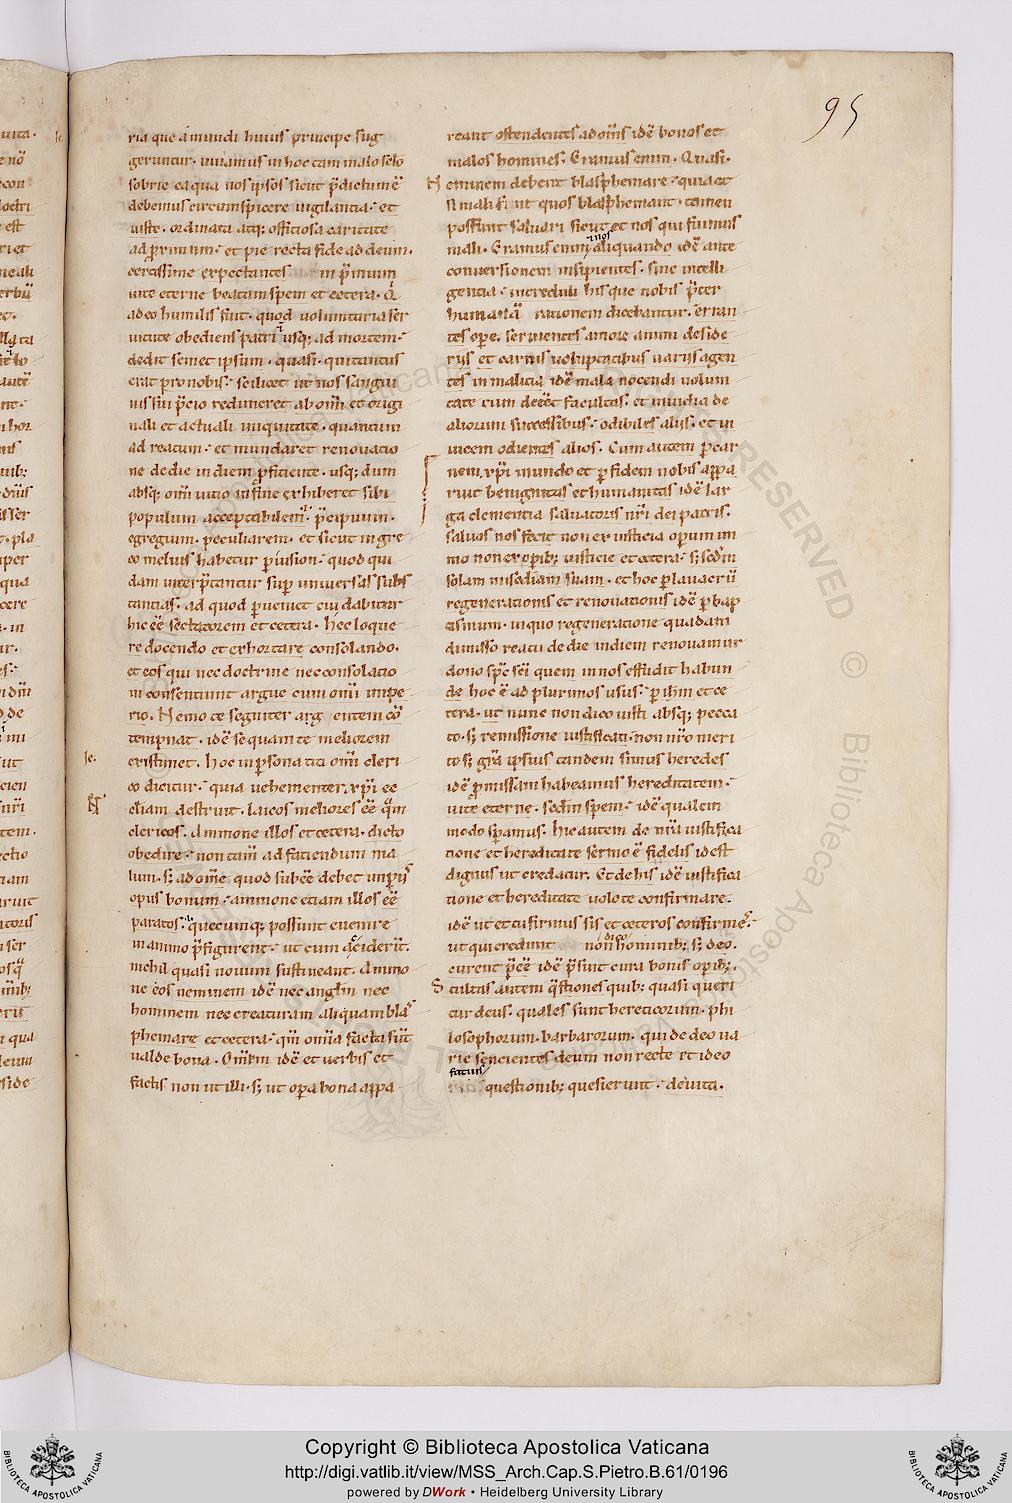 95
ria que a mundi huius principe sug
geruntur. uiuamus in hoc tam malo sclo
sobrie ea qua nos ipsos sicut p̄dictum ē
debemus circumspicere uigilantia. et
iuste. ordinata atq; officiosa caritate
ad proximum. et pie recta fide ad deum.
certissime expectantes in p̄mium
uite eterne beatam spem et cetera. Qī
adeo humilis fuit. quod uoluntaria ser
uitute obediens patri usq; ad mortem.
dedit semet ipsum. quasi. quitantus
erat pro nobis. scilicet ut nos sangui
nis sui p̄cio redimeret ab om̄i et origi
nali et actuali iniquitate. quantum
ad reatum. et mundaret renouatio
ne de die in diem p̄ficiente. usq; dum
absq; om̄i uitio in fine exhiberet sibi
populum acceptabilem. p̄cipuum.
egregium. peculiarem. et sicut in gre
co melius habetur
dam interp̄tantur sup̄ uniuersas subs
tantias. ad quod p̄ueniet cui dabitur
hic eē sectatorem et cetera. Hęc loque
re docendo et exhortare consolando.
et eos qui nec doctrine nec consolatio
ni consentiunt argue cum om̄i impe
rio. Nemo te segniter arg entem cō
tempnat. idē se quam te meliorem
existimet. hoc in p̄sona titi om̄i cleri
co dicitur. quia uehementer xp̄i ec
cl̄iam destruit. laicos meliores eē q̄m
clericos. Ammone illos et cetera. dicto
obedire. non tam̄ ad faciendum ma
lum. s; ad om̄e quod subēē debet
opus bonum. ammone etiam illos eē
paratos. quecumq; possunt euenire
in animo p̄figurent. ut cum acciderīt.
nichil quasi nouum sustineant. Ammo
ne eos neminem idē nec angl̄m nec
hominem nec creaturam aliquam blas
phemare et cetera. qm̄ om̄ia facta sūt
ualde bona. Om̄em idē et uerbis et
factis non ut illi. s; ut op̄a bona appa
reant ostendentes ad om̄s idē bonos et
malos homines. Eramus enim. Quasi.
Neminem debent blasphemare. quia et
si mali s̄ ut quos blasphemant. tamen
possunt saluari sicut et nos qui fuimus
mali. Eramus enim
et nos
aliquando idē ante
conuersionem insipientes. sine intelli
gentia. increduli his que nobis p̄ter
humanā rationem dicebantur. erran
tes ope. seruientes amore animi deside
rijs et carnis uoluptatibus uarijs agen
tes in malitia idē mala nocendi uolun
tate cum deēēt facultas. et inuidia de
aliorum successibus. odibiles alijs. et in
uicem odientes alios. Cum autem p̄ car
nem xp̄i mundo et p̄ fidem nobis appa
ruit benignitas et humanitas idē lar
ga clementia saluatoris nr̄i dei patris.
saluos nos fecit non ex iusticia operum im
mo non ex op̄ib; iusticie et cetera. s; scd̄m
solam mis̄cdiam suam. et hoc p̄ lauacrū
regenerationis et renouationis idē p̄ bap
tismum. in quo regeneratione quadam
dimisso reatu de die in diem renouamur
dono sp̄c sc̄i quem in nos effudit habun
de hoc ē ad plurimos usus. p̄ ih̄m et ce
tera. ut nunc non dico iusti absq; pecca
to. s; remissione iustificati. non nr̄o meri
to s; gr̄a ipsius tandem simus heredes
idē p̄missam habeamus hereditatem.
uite eterne. scd̄m spem. idē qualem
modo sp̄amus. hic autem de nr̄a iustifica
tione et hereditate sermo ē fidelis id est
dignus ut credatur. Et de his idē iustifica
tione et hereditate uolo te confirmare.
idē ut et tu firmus sis et ceteros confirmes.
ut qui credunt
dico
non hominib; s; deo.
curent p̄cē idē p̄sint cura bonis op̄ib;.
Stultas autem q̄stiones quib; quasi queri
tur deus. quales sunt hereticorum. phi
losophorum. barbarorum. qui de deo ua
rie sencientes deum non recte et ideo
questionib; quesierunt. deuita.
Copyright © Biblioteca Apostolica Vaticana
http://digi.vatlib.it/view/MSS_Arch.Cap.S.Pietro.B.61/0196
powered by DWork • Heidelberg University Library